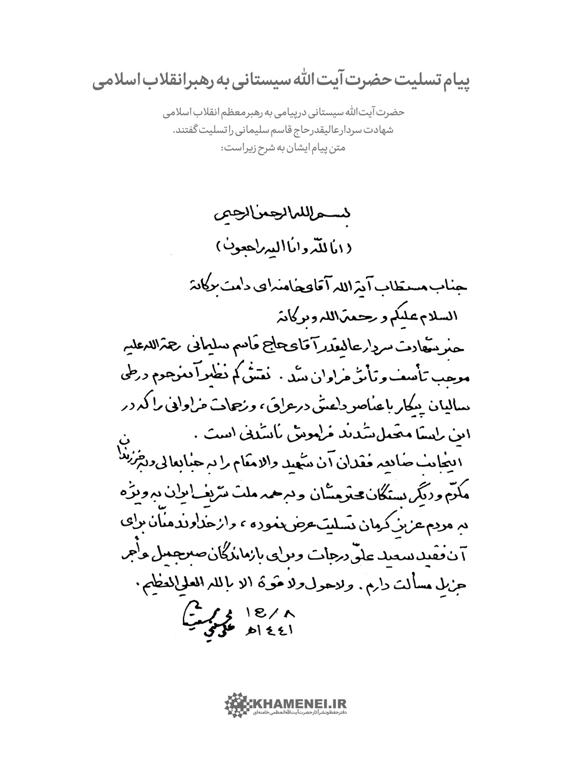 پیام تسلیت حضرت آیت الله سیستانی به رهبر انقلاب اسلامی
حضرت آیت‌الله سیستانی در پیامی به رهبر معظم انقلاب اسلامی
شهادت سردار عالیقدر حاج قاسم سلیمانی را تسلیت گفتند.
متن پیام ایشان به شرح زیر است:
بسم الله الرحمن الرحیم
(انا لله و انا الیه راجعون)
جناب مستطاب آیة الله آقای خامنه‌ای دامت برکاته
السلام علیکم و رحمة الله و برکاته
خبر شهادت سردار عالیقدر آقای حاج قاسم سلیمانی رحمة الله علیه
موجب تأسف و تأثر فراوان شد . نقش کم نظیر آنمرحوم در طی
سالیان پیکار با عناصر داعش در عراق ، و زحمات فراوانی را که در
این راستا متحمل شدند فراموش ناشدنی است .
اینجانب ضایعه فقدان آن شهید والامقام را به جنابعالی و به فرزندان
مکرّم و دیگر بستگان محترمشان و به همه ملت شریف ایران به ویژه
به مردم عزیز کرمان تسلیت عرض نموده ، و از خداوند منّان برای
آن فقید سعید علوّ درجات و برای بازماندگان صبر جمیل و أجر
جزیل مسألت دارم . ولا حول ولا قوة الا بالله العلي العظیم .
٨ / ١٤
١٤٤١هـ
KHAMENEI.IR
دفتر حفظ و نشر آثار حضرت آیت‌الله العظمی خامنه‌ای